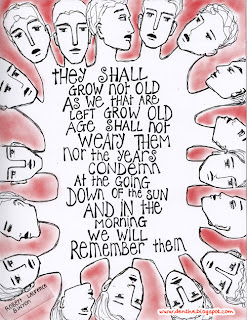 they shall
grow not old
as we that are
left grow old
Age shall not
weary them
nor the years
condemn
at the going
down of the sun
and in the
morning
we will
remember them
Robert Laurence
Binyon
www.denthe.blogspot.com